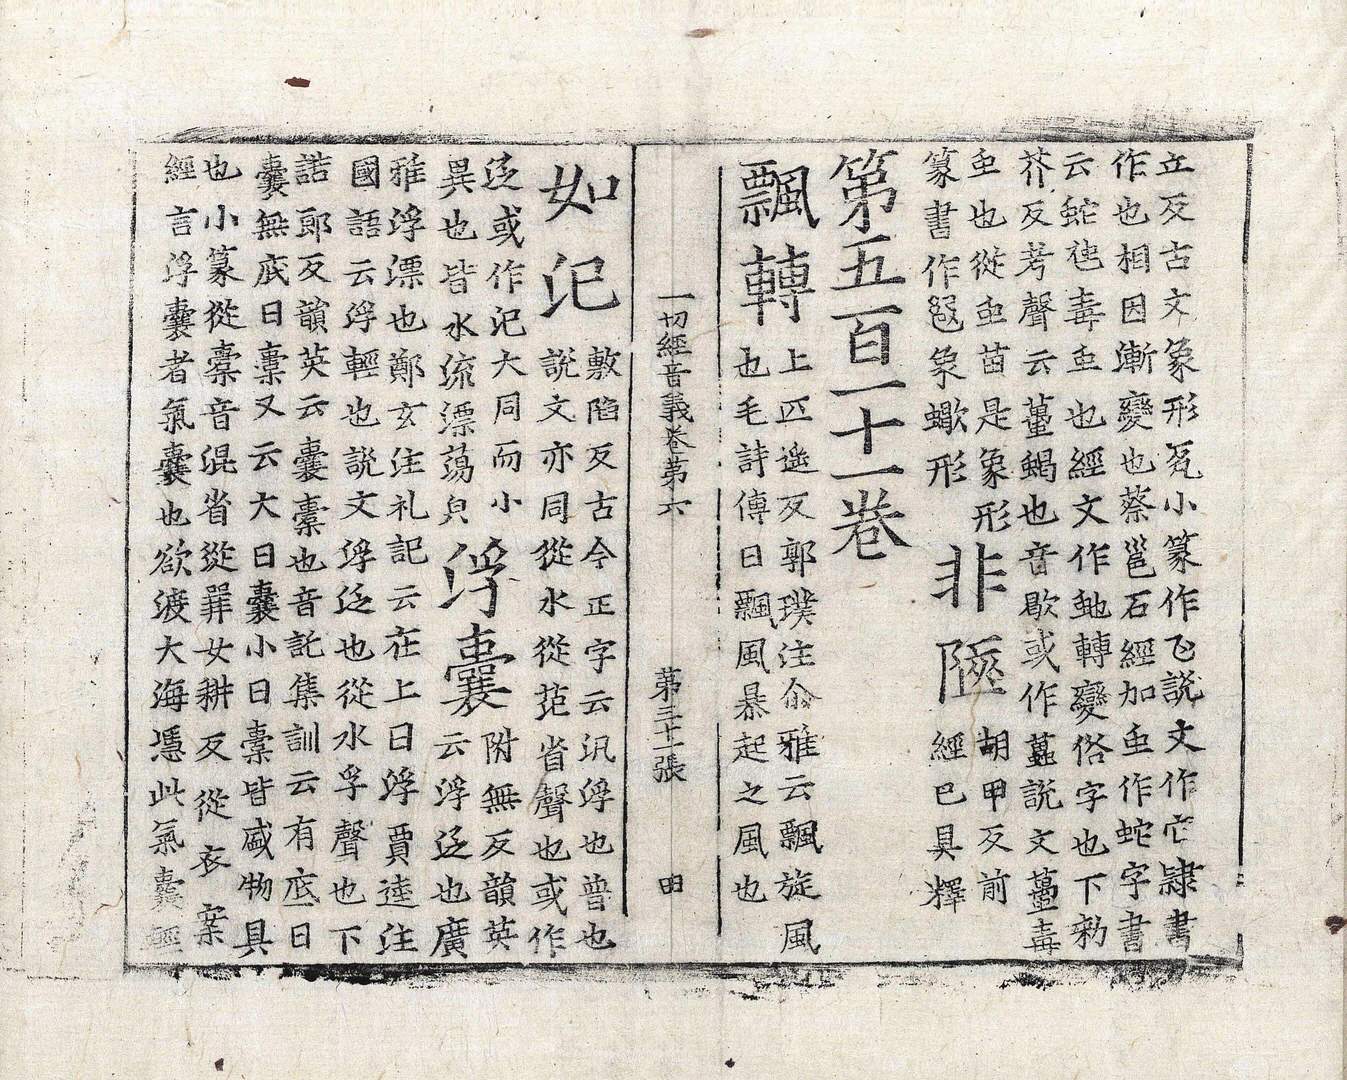 立反古文象形㐌小篆作飞說文作它隷書
作也相因漸變也蔡邕石經加虫作蛇字書
云蛇虵毒虫也經文作虵轉變俗字也下勑
芥反考聲云蠆蝎也音歇或作䘍說文蠆毒
虫也從虫苗是象形
篆書作𧍣象蠍形
非陿
胡甲反前
經巳具釋
第五百一十一卷
飄轉
上匹遙反郭璞注尒雅云飄旋風
也毛詩傳曰飄風暴起之風也
一切經音義卷第六 第三十一張 田
如汜
敷陷反古今正字云汎浮也普也
說文亦同從水從茈省聲也或作
泛或作汜大同而小
異也皆水流漂蕩皃
浮囊
附無反韻英
云浮泛也廣
雅浮漂也鄭玄注礼記云在上曰浮賈逵注
國語云浮輕也說文浮泛也從水孚聲也下
諾郎反韻英云囊橐也音託集訓云有底曰
囊無底曰橐又云大曰囊小曰橐皆盛物具
也小篆從橐音混省從㗊女耕反從衣案
經言浮囊者氣囊也欲渡大海憑此氣囊輕